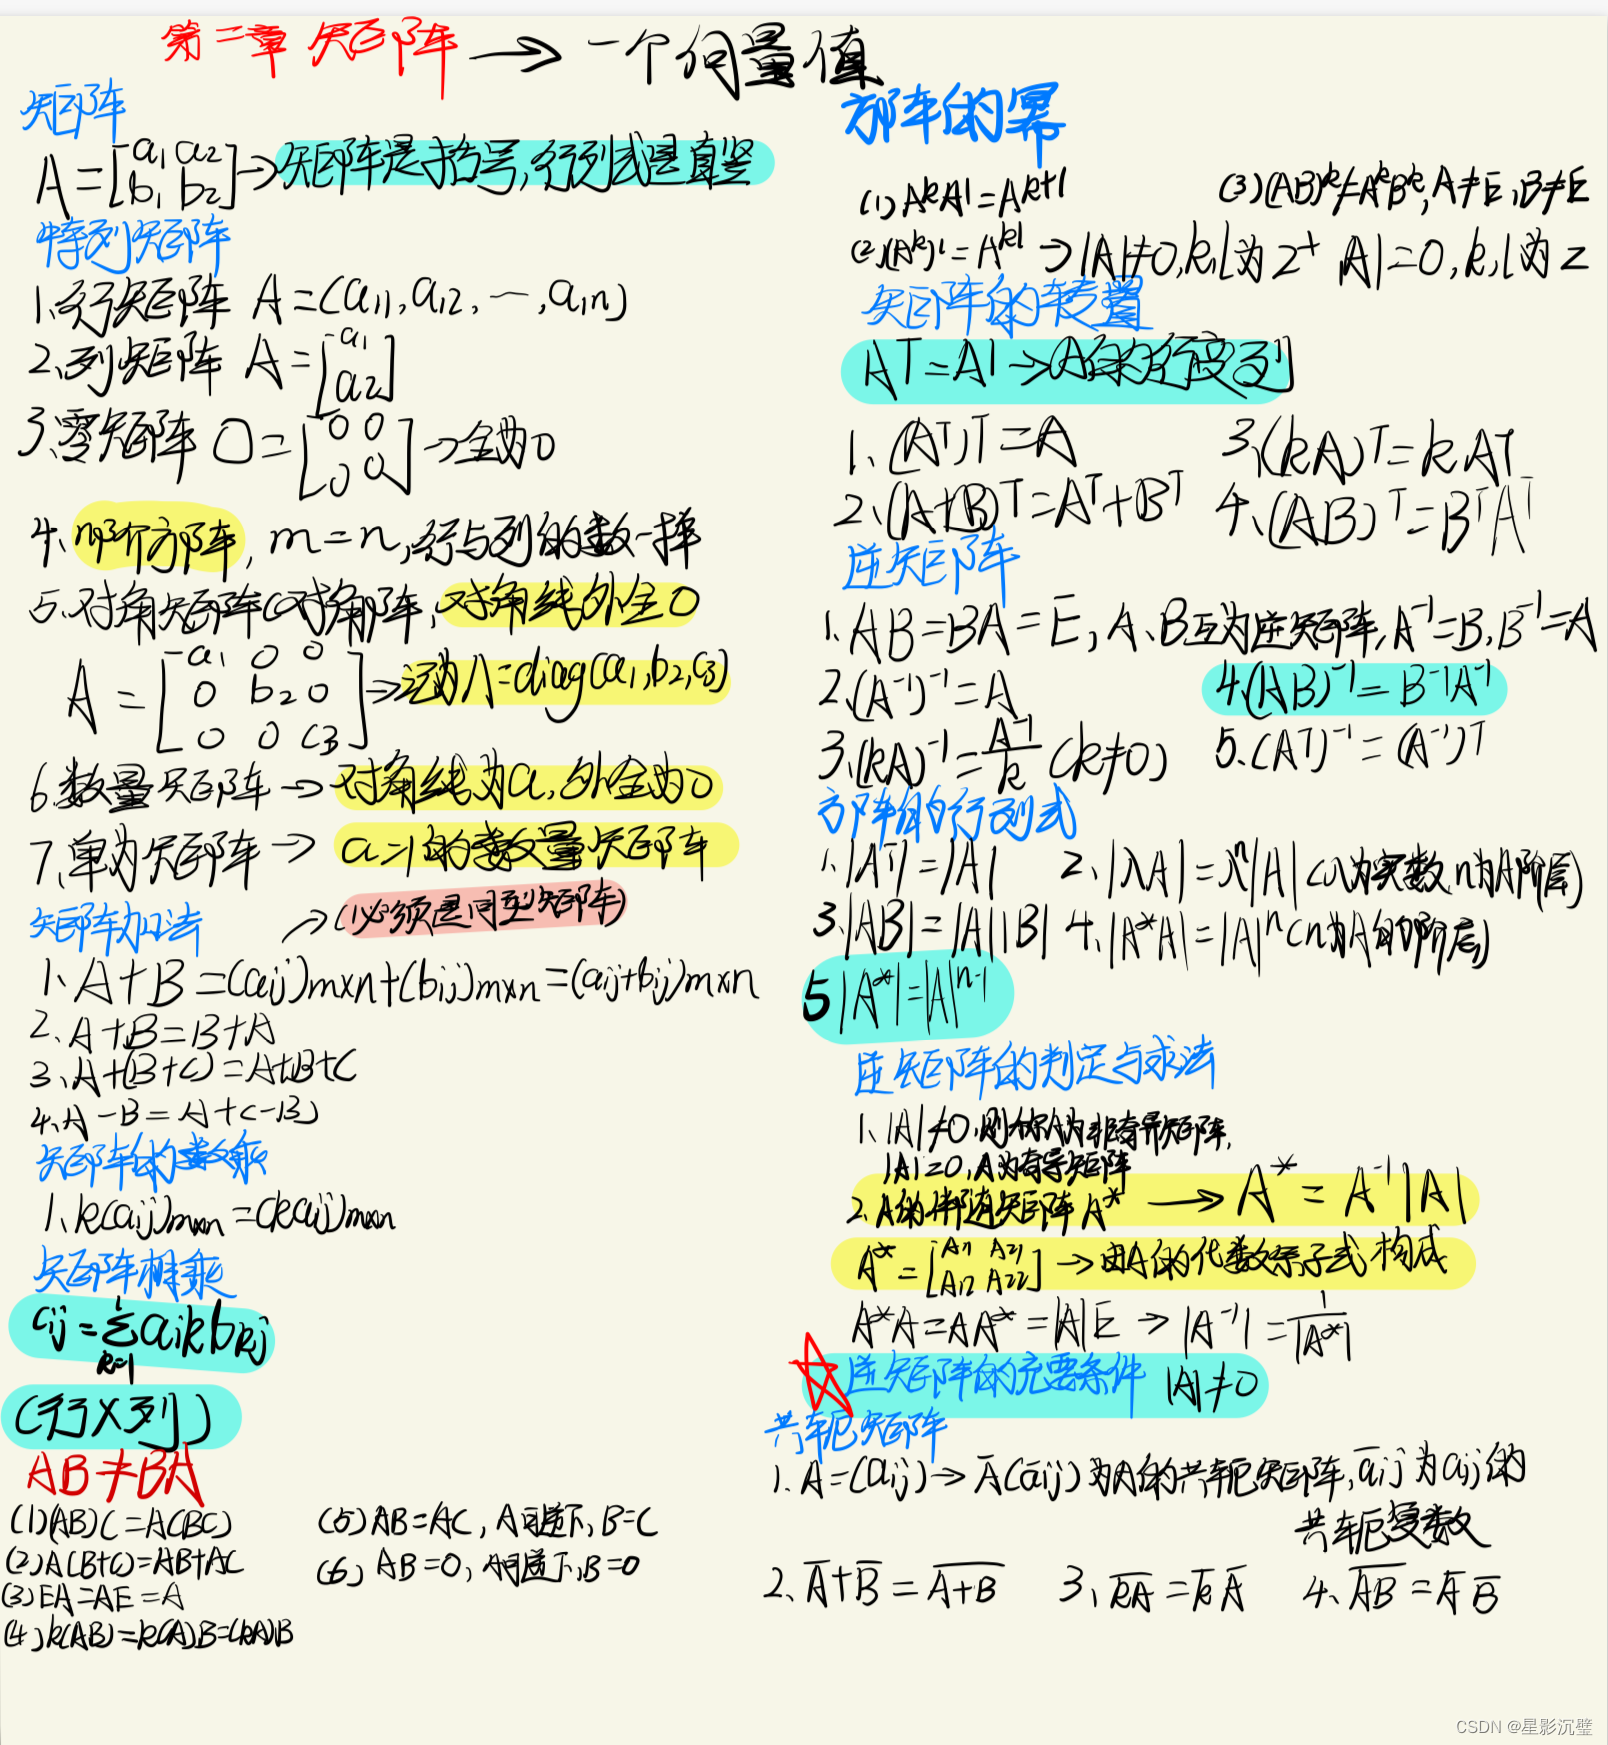 第二章 矩阵 → 一个向量值
矩阵
A=[a1 a2
b1 b2] → 矩阵是括号,行列式是直竖
特列矩阵
1.行矩阵 A=(a11,a12,…,a1n)
2.列矩阵 A=[a1
a2]
3.零矩阵 O=[0 0
0 0] → 全为0
4.n阶方阵,m=n,行与列的数一样
5.对角矩阵(对角阵,对角线外全0
A=[a1 0 0
0 b2 0
0 0 c3] → 记为Λ=diag(a1,b2,c3)
6.数量矩阵 → 对角线为a,外全为0
7.单为矩阵 → a=1的数量矩阵
矩阵加法 → (必须是同型矩阵)
1.A+B=(aij)m×n+(bij)m×n=(aij+bij)m×n
2.A+B=B+A
3.A+(B+C)=A+B+C
4.A-B=A+(-B)
矩阵的数乘
1.k(aij)m×n=(kaij)m×n
矩阵相乘
cij=Σaikbkj
k=1
(行×列)
AB≠BA
(1)(AB)C=A(BC)
(2)A(B+C)=AB+AC
(3)EA=AE=A
(4)k(AB)=k(A)B=(kA)B
(5)AB=AC,A可逆下,B=C
(6)AB=0,A可逆下,B=0
方阵的幂
(1)A^kA^l=A^{k+l}
(2)(A^k)^l=A^{kl} → |A|≠0,k,l为Z+ |A|=0,k,l为Z
(3)(AB)^k≠A^kB^k,A≠E,B≠E
矩阵的转置
A^T=A' → A的行变列
1.(A^T)^T=A
2.(A+B)^T=A^T+B^T
3.(kA)^T=kA^T
4.(AB)^T=B^TA^T
逆矩阵
1.AB=BA=E,A、B互为逆矩阵,A^{-1}=B,B^{-1}=A
2.(A^{-1})^{-1}=A
3.(kA)^{-1}=A^{-1}/k (k≠0)
4.(AB)^{-1}=B^{-1}A^{-1}
5.(A^T)^{-1}=(A^{-1})^T
方阵的行列式
1.|A^T|=|A|
2.|λA|=λ^n|A| (λ为实数,n为A阶层)
3.|AB|=|A||B|
4.|A*A|=|A|^n (n为A的阶层)
5|A*|=|A|^{n-1}
逆矩阵的判定与求法
1.|A|≠0,则称A为非奇异矩阵,
|A|=0,A为奇异矩阵
2.A的伴随矩阵A* → A*=A^{-1}|A|
A*=[A11 A21
A12 A22] → 由A的代数余子式构成
A*A=AA*=|A|E → |A^{-1}|=1/|A*|
逆矩阵的充要条件 |A|≠0
共轭矩阵
1.A=(aij) → A̅(a̅ij)为A的共轭矩阵,a̅ij为aij的
共轭复数
2.A̅+B̅=\overline{A+B}
3.\overline{kA}=k̅A̅
4.\overline{AB}=A̅B̅
CSDN @星影沉璧